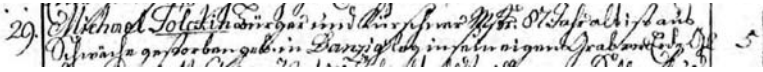 29. Michael Tolckin bürger und Kürschner Mstr. 87 Jahr alt ist aus
Schwäche gestorben geb. in Danzig lag in sein eigen Grab 5